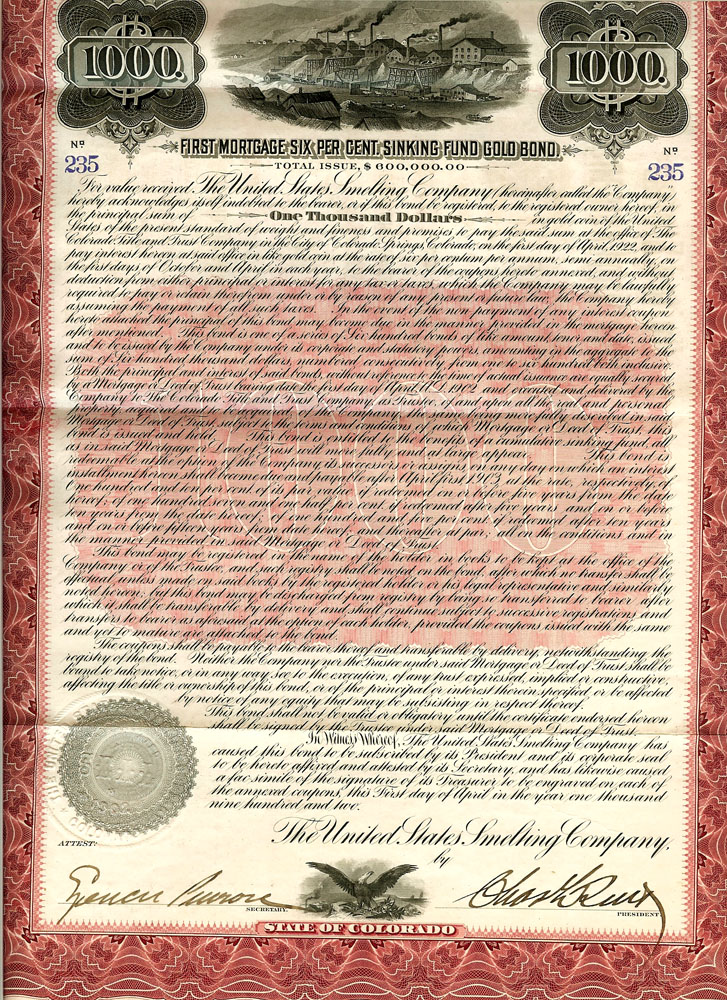 1000. 1000.
FIRST MORTGAGE SIX PER CENT. SINKING FUND GOLD BOND.
Nº Nº
235 235
TOTAL ISSUE, $600,000.00
For value received, The United States Smelting Company (hereinafter called the Company)
hereby acknowledges itself indebted to the bearer, or if this bond be registered, to the registered owner hereof, in
the principal sum of One Thousand Dollars in gold coin of the United
States of the present standard of weight and fineness and promises to pay the said sum at the office of The
Colorado Title and Trust Company in the City of Colorado Springs, Colorado, on the first day of April, 1922, and to
pay interest hereon at said office in the gold coin at the rate of six per centum per annum, semi annually, on
the first days of October and April in each year, to the bearer of the coupons hereto annexed, and without
deduction from either principal or interest for any tax or taxes, which the Company may be lawfully
required to pay or retain therefrom under or by reason of any present or future law; the Company hereby
assuming the payment of all such taxes. In the event of the non-payment of any interest coupon
hereto annexed the principal of this bond may become due in the manner provided in the mortgage or deed
after mentioned. This bond is one of a series of Six hundred bonds of the amount, tenor and date, issued
and to be issued by the Company under its corporate and statutory powers, amounting in the aggregate to the
sum of Six hundred thousand dollars, numbered consecutively, from one to six hundred both inclusive.
Both the principal and interest of said bonds, without preference for time of actual issue are equally secured
by a Mortgage or Deed of Trust bearing date the first day of April, A.D. 1902, and executed and delivered by the
Company to The Colorado Title and Trust Company, as Trustee, of and upon all the real and personal
property, acquired and to be acquired by the Company, as the same is more fully described in said
Mortgage or Deed of Trust, subject to the terms and conditions of which Mortgage or Deed of Trust, this
bond is issued and held. This bond is entitled to the benefits of a cumulative sinking fund, all
as in said Mortgage or Deed of Trust will more fully and at large appear. This bond is
redeemable at the option of the Company, its successors or assigns, on any day on which an interest
installment thereon shall become due and payable after April first 1903, at the rate, respectively, of
one hundred and ten per cent of its par value, if redeemed on or before five years from the date
hereof, of one hundred seven and one half per cent if redeemed after five years and on or before
ten years from the date hereof, of one hundred and five per cent, if redeemed after ten years
and on or before fifteen years from date hereof, and thereafter at par; on the conditions and in
the manner provided in said Mortgage or Deed of Trust.
This bond may be registered in the name of the holder in books to be kept at the office of the
Company or of the Trustee, and such registry shall be noted on the bond, after which no transfer shall be
effectual unless made on said books by the registered holder or his legal representative and similarly
noted hereon, but this bond may be discharged from registry by being so transferred to bearer, after
which it shall be transferable by delivery and shall continue subject to successive registrations and
transfers to bearer as aforesaid at the option of each holder, provided the coupons issued with the same
and yet to mature are attached to the bond.
The coupons shall be payable to the bearer thereof and transferable by delivery notwithstanding the
registry of the bond. Neither the Company nor the Trustee under said Mortgage or Deed of Trust shall be
bound to take notice, or in any way see to the execution, of any trust expressed, implied or constructive,
affecting the title or ownership of this bond, or of the principal or interest therein specified, or be affected
by notice of any equity that may be subsisting in respect thereof.
This bond shall not be valid or obligatory until the certificate endorsed hereon
shall be signed by the Trustee under said Mortgage or Deed of Trust.
In Witness Whereof, The United States Smelting Company has
caused this bond to be subscribed by its President and its corporate seal
to be hereto affixed and attested by its Secretary, and has likewise caused
a fac simile of the signature of its Treasurer to be engraved on each of
the annexed coupons, this First day of April in the year one thousand
nine hundred and two.
The United States Smelting Company,
ATTEST: by
SECRETARY. PRESIDENT.
STATE OF COLORADO